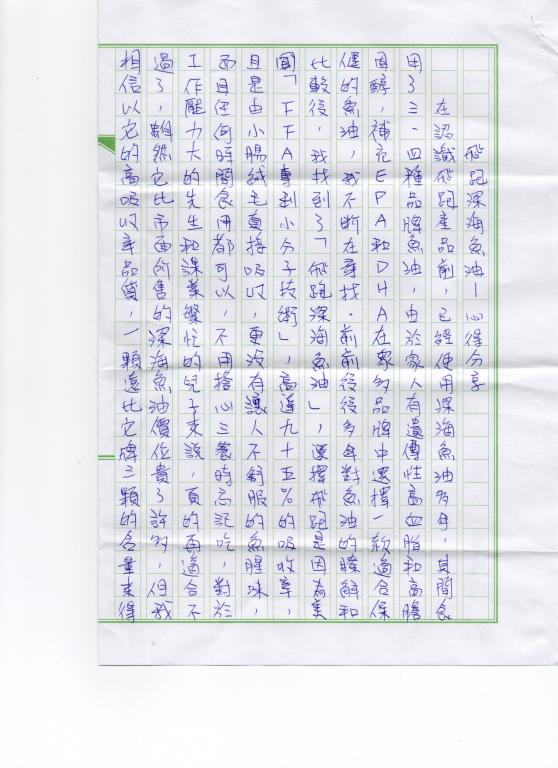 飛跑深海魚油—心得分享
在認識飛跑產品前，已經使用深海魚油多年，其間食
用了三、四種品牌魚油，由於家人有遺傳性高血脂和高膽
固醇，補充EPA和DHA在眾多品牌中選擇一款適合保
健的魚油，我不斷在尋找．前前後後多年對魚油的瞭解和
比較後，我找到了「飛跑深海魚油」，選擇飛跑是因為美
國「FFA專利小分子技術」，高達九十五%的吸收率，
且是由小腸絨毛直接吸收，更沒有讓人不舒服的魚腥味，
而且任何時間食用都可以，不用擔心三餐時忘記吃，對於
工作壓力大的先生和課業繁忙的兒子來說，真的再適合不
過了，雖然它比市面所售的深海魚油價位貴了許多，但我
相信以它的高吸收率品質，一顆遠比它牌三顆的含量來得